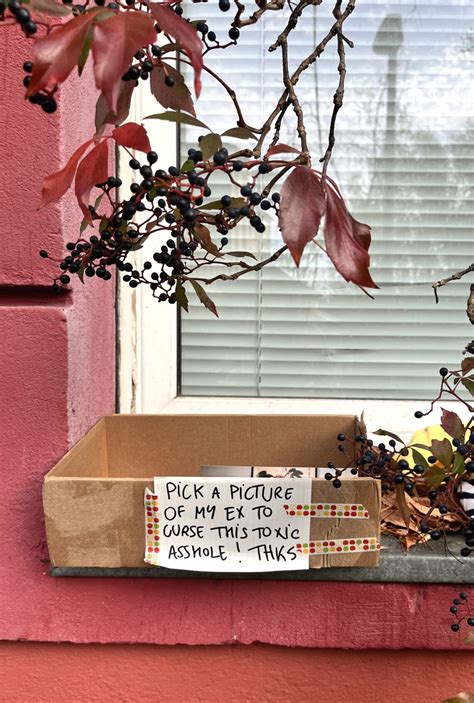 PICK A PICTURE
OF MY EX TO
CURSE THIS TOXIC
ASSHOLE! THKS